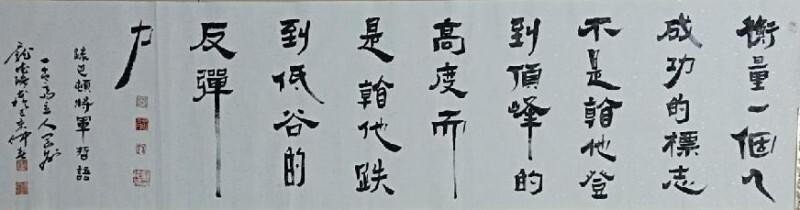 衡量一個人
成功的標志
不是看他登
到頂峰的
高度而
是看他跌
到低谷的
反彈
力
錄巴頓將軍哲語